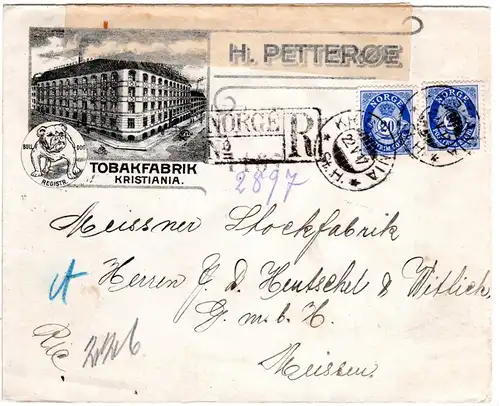 H. PETTERØE
BULL DOG
REGISTR.
TOBAKFABRIK
KRISTIANIA.
NORGE
R
2897
NORGE
20
NORGE
KRISTIANIA
Meissner Stockfabrik
Herren J. D. Hentschel & Wittlich,
G.m.b.H.
Meissen.